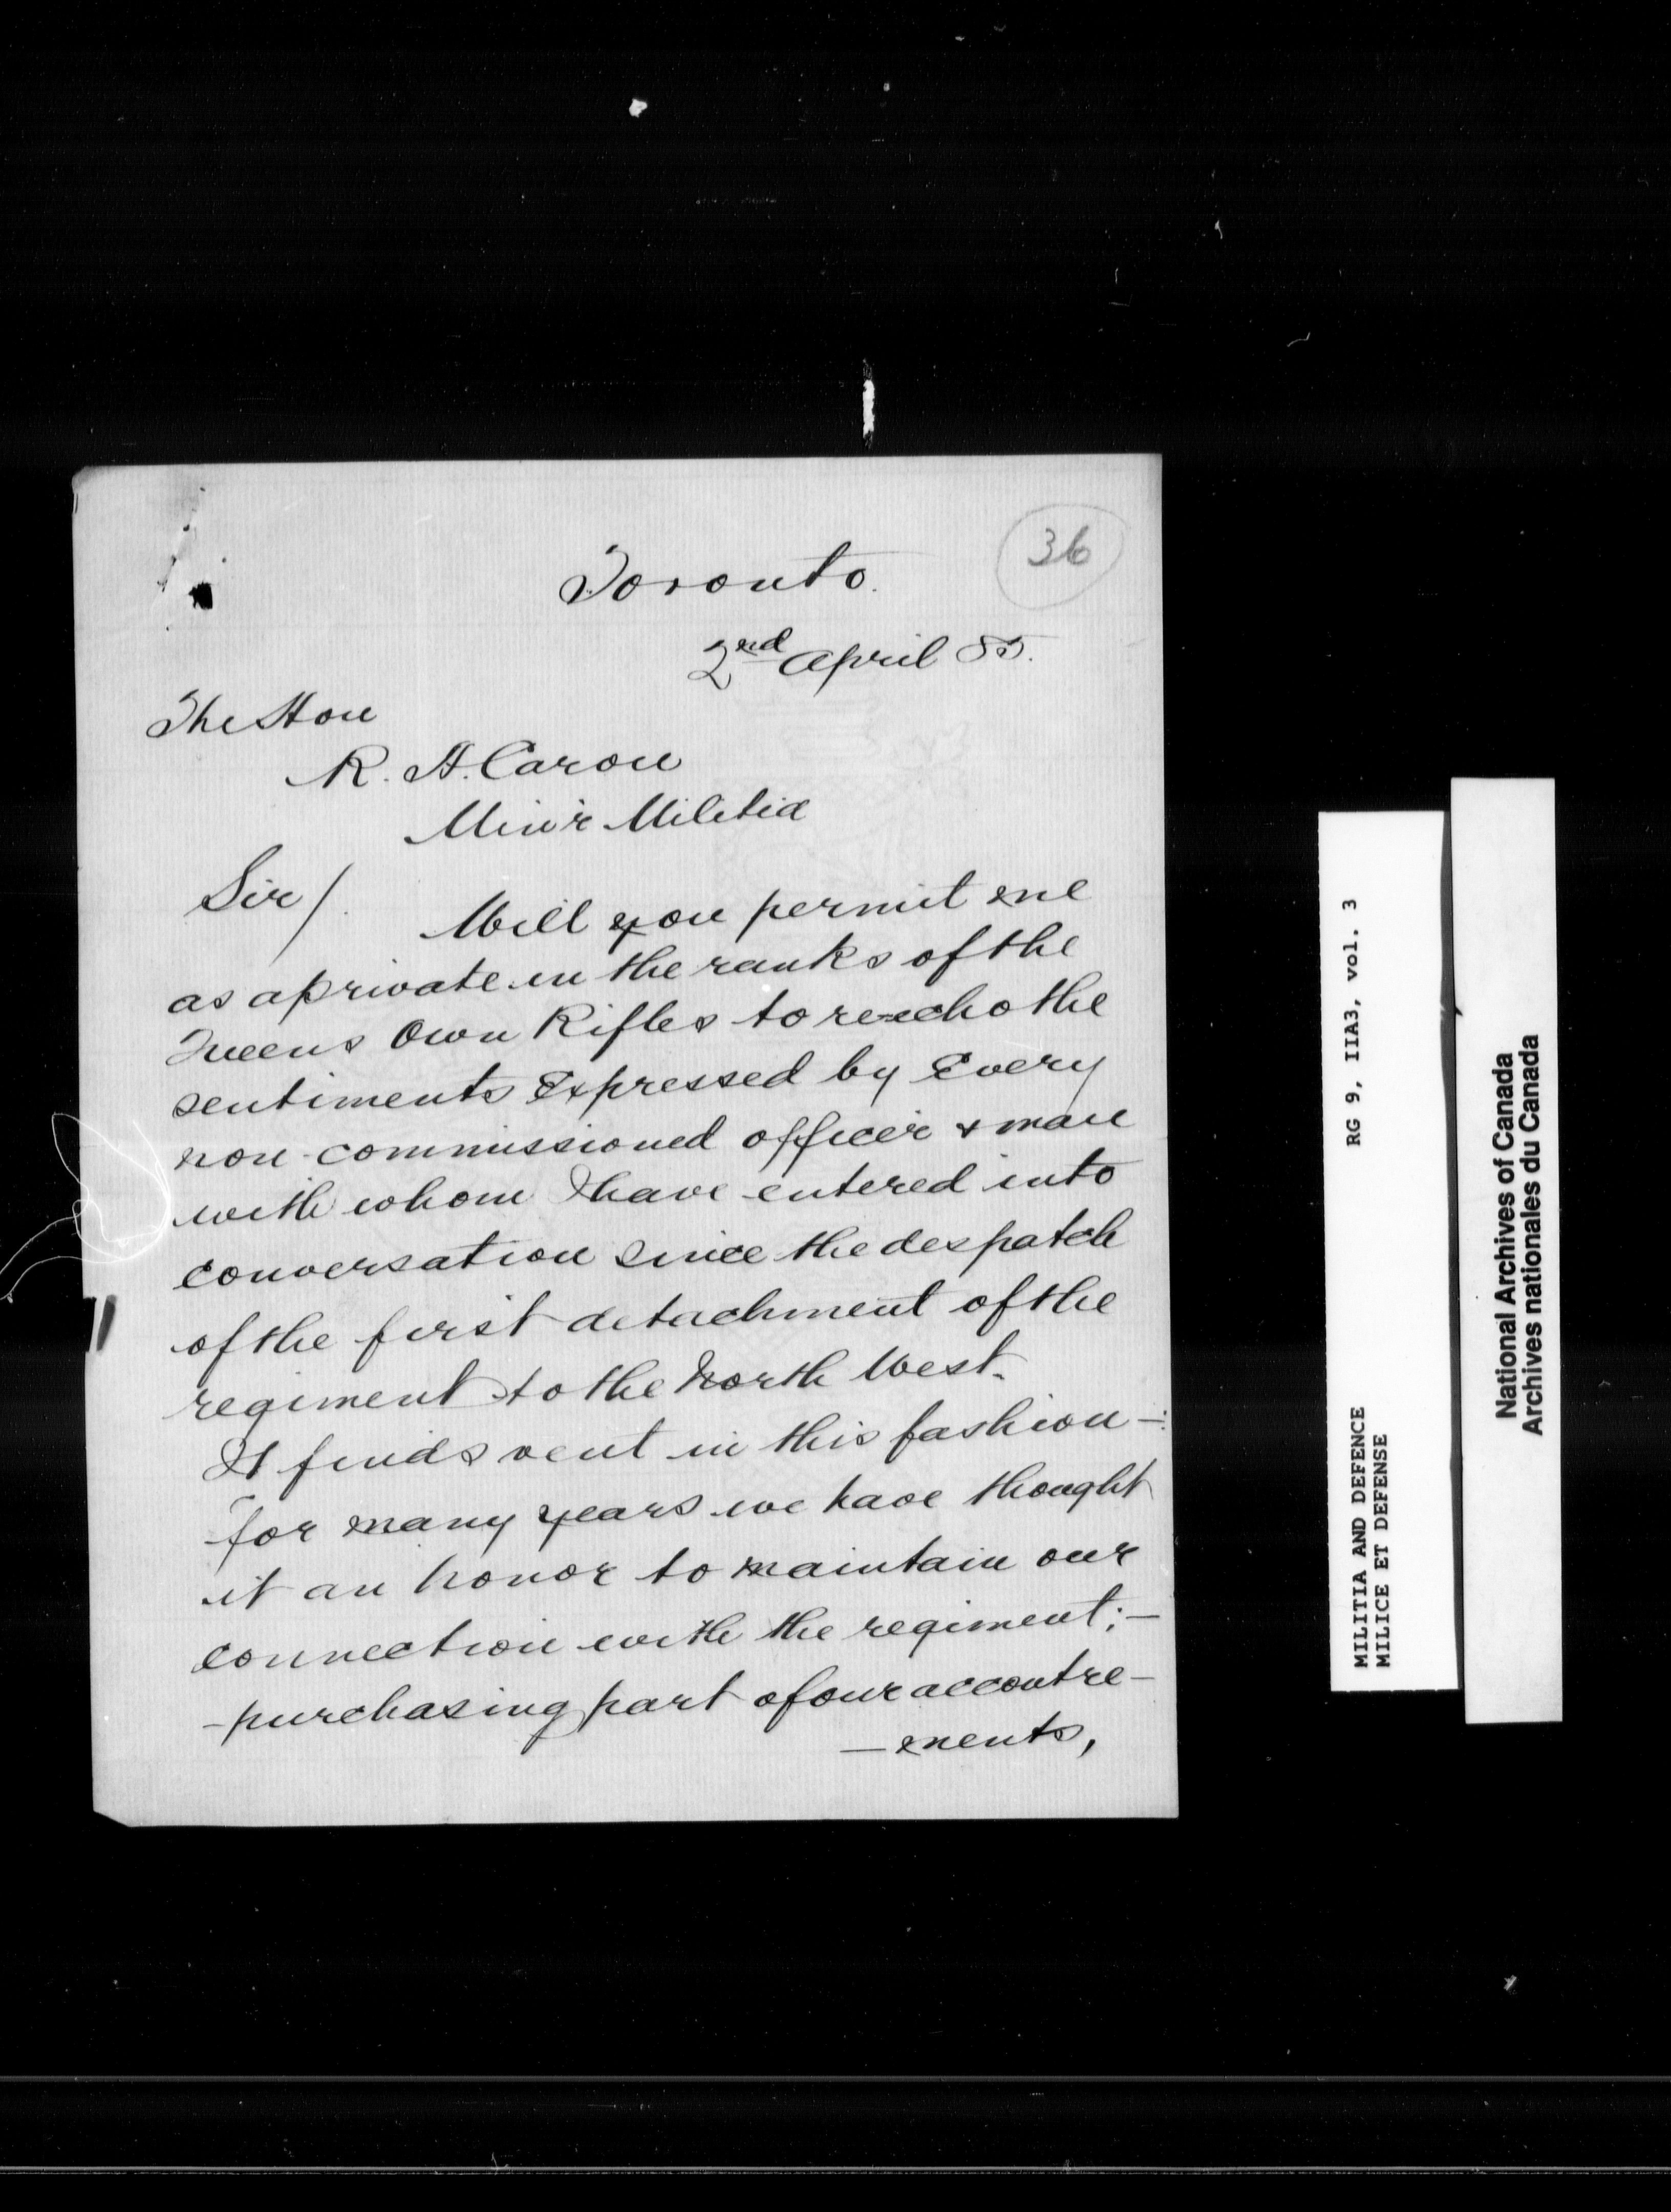 36
Toronto.
2nd April 85.
The Hon
R. A. Caron
Min'r Militia
Sir/. Will you permit me
as a private in the ranks of the
Queens Own Rifles to re-echo the
sentiments Expressed by Every
non-commissioned officer & man
with whom I have entered into
conversation since the despatch
of the first detachment of the
regiment to the North West.
It finds vent in this fashion—:
For many years we have thought
it an honor to maintain our
connection with the regiment;—
-purchasing part of our accoutre-
—ments,
MILITIA AND DEFENCE RG 9, IIA3, vol. 3
MILICE ET DEFENSE
National Archives of Canada
Archives nationales du Canada